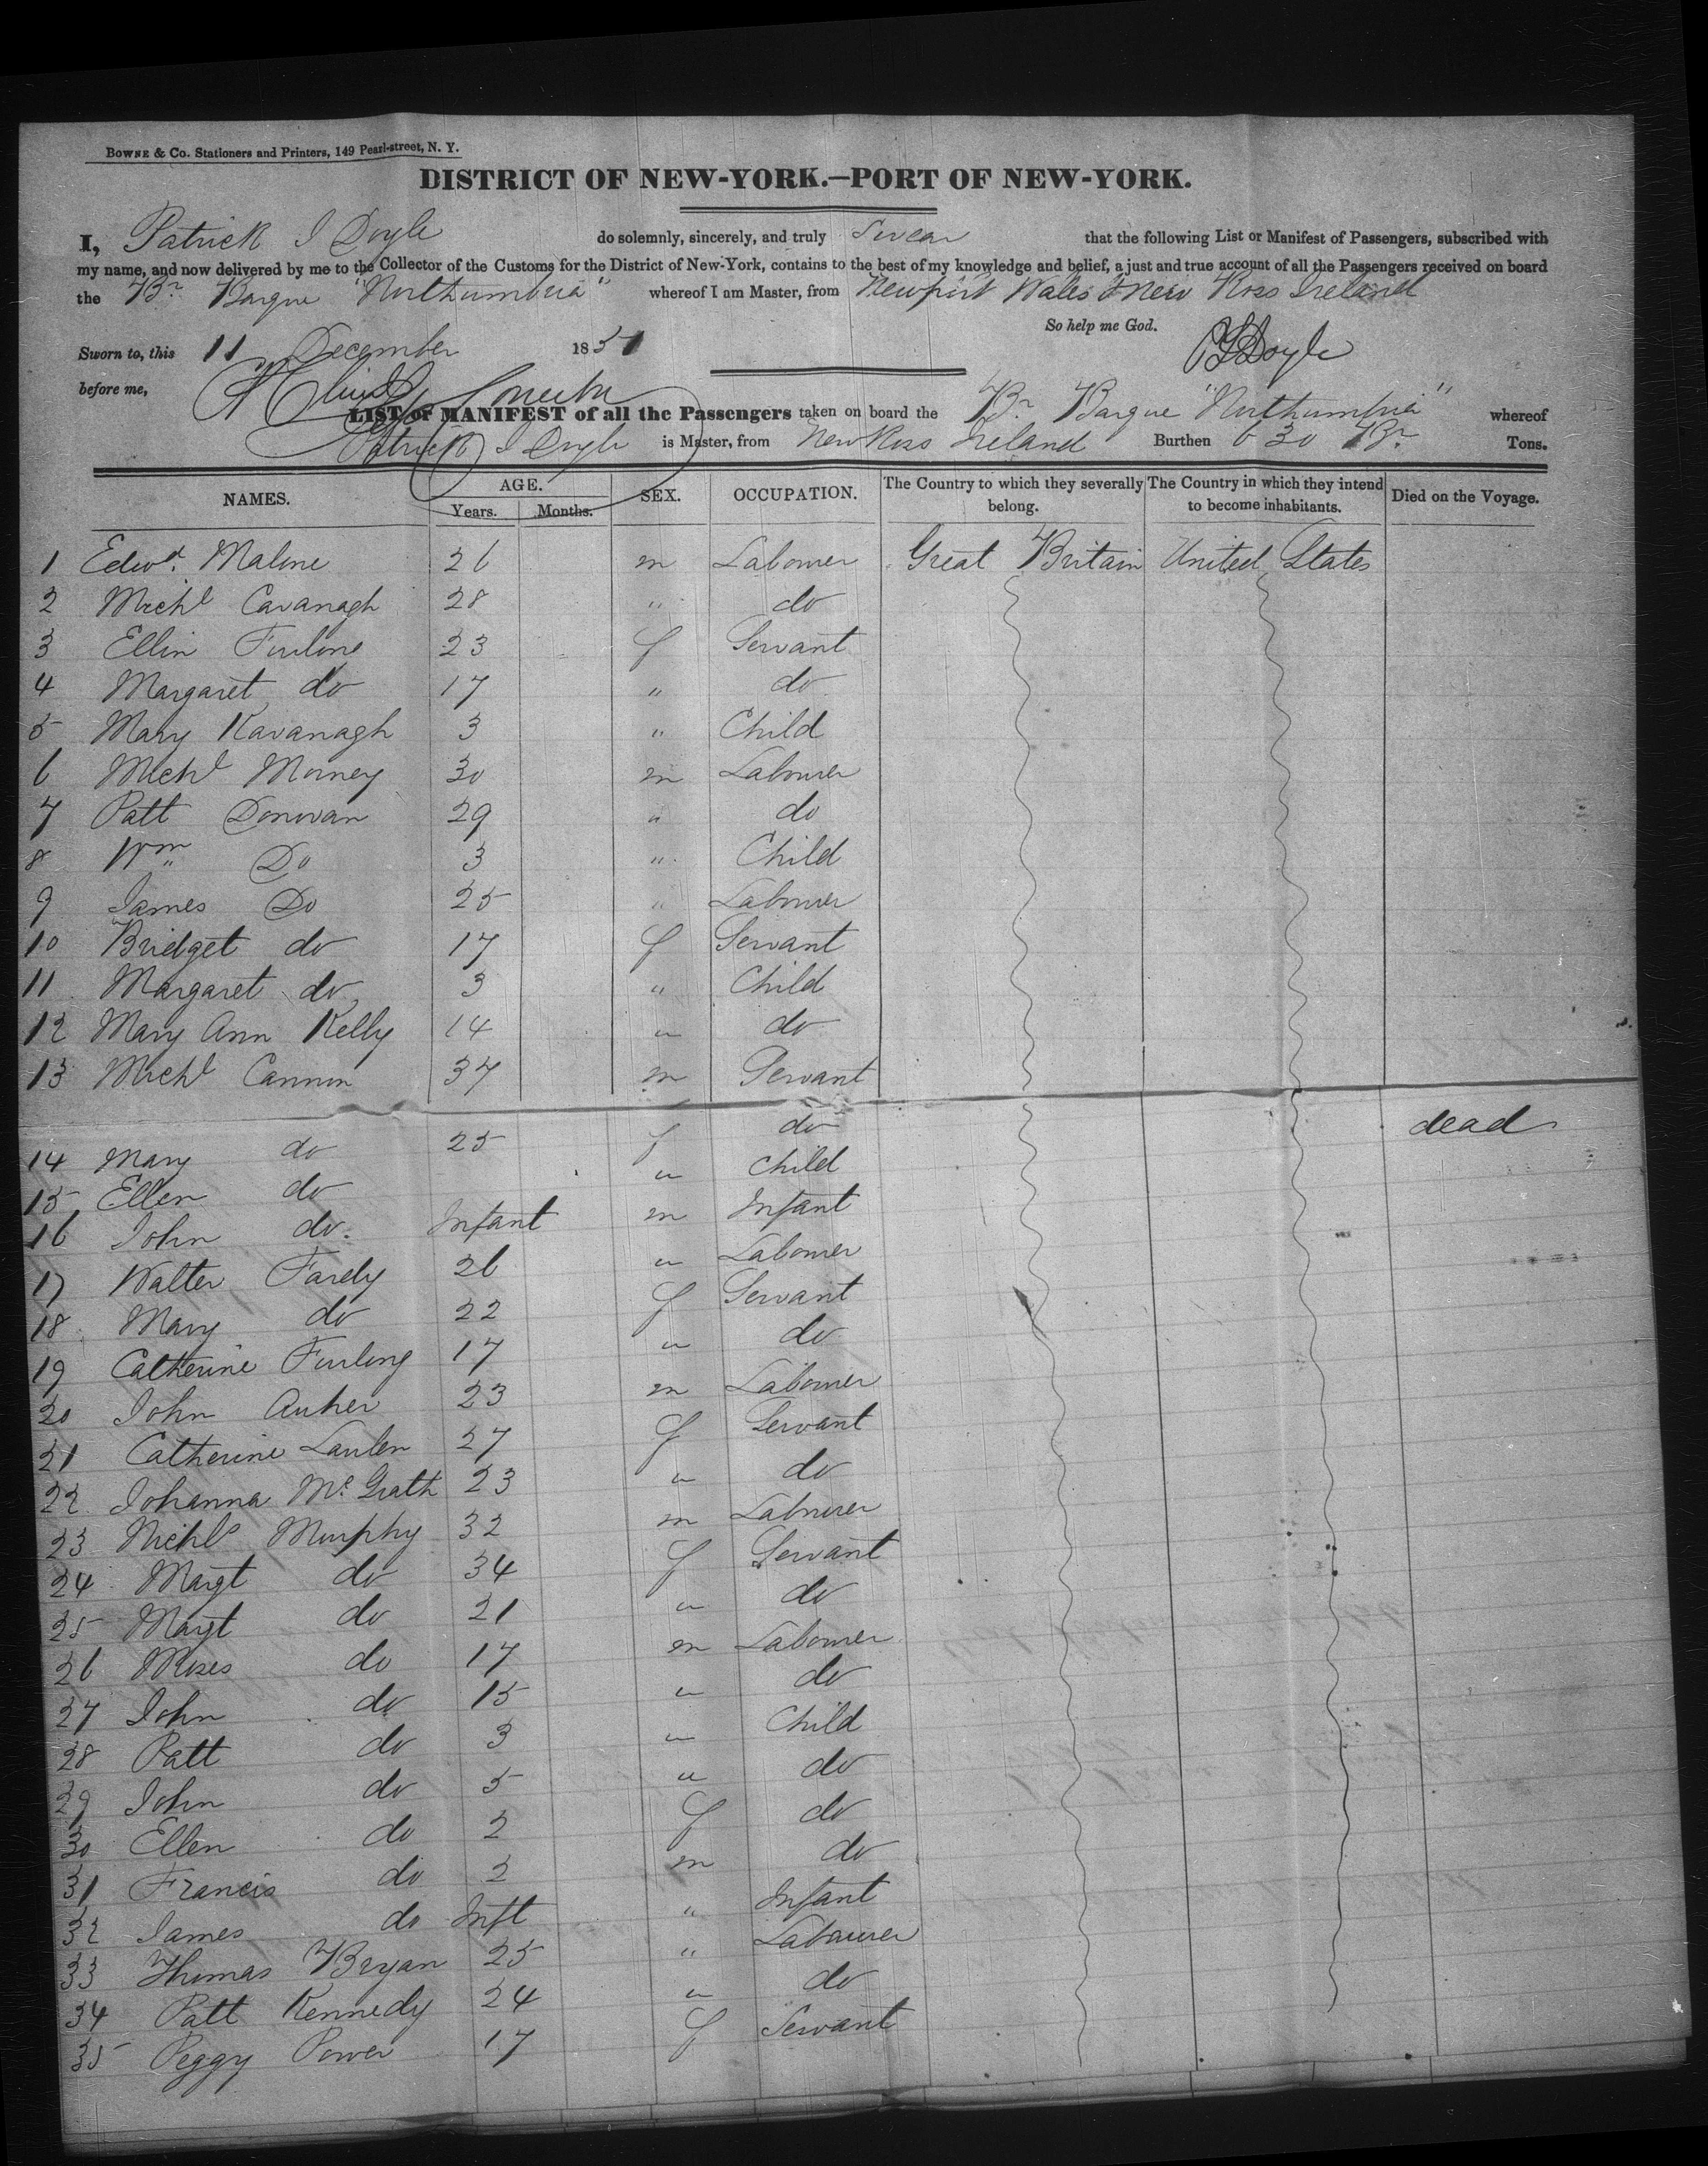 BOWNE & CO. Stationers and Printers, 149 Pearl-street, N. Y.
DISTRICT OF NEW-YORK.—PORT OF NEW-YORK.
I, Patrick J Doyle do solemnly, sincerely, and truly Swear that the following List or Manifest of Passengers, subscribed with
my name, and now delivered by me to the Collector of the Customs for the District of New-York, contains to the best of my knowledge and belief, a just and true account of all the Passengers received on board
the Br Barque "Northumbria" whereof I am Master, from Newport Wales & New Ross Ireland
So help me God.
Sworn to, this 11 December 1851 PJDoyle
before me,
LIST OF MANIFEST of all the Passengers taken on board the Br Barque "Northumbria" whereof
Patrick J Doyle is Master, from New Ross Ireland Burthen 630 Br. Tons.
NAMES. AGE. SEX. OCCUPATION. The Country to which they severally belong. The Country in which they intend to become inhabitants. Died on the Voyage.
Years. Months.
1 Edwd. Malone 26 m Labourer Great Britain United States
2 Michl Cavanagh 28 " do
3 Ellin Furlone 23 f Servant
4 Margaret do 17 " do
5 Mary Kavanagh 3 " Child
6 Michl 30 m Labourer
7 Patt Donovan 29 " do
8 Wm Do 3 " Child
9 James Do 25 " Labourer
10 Bridget do 17 f Servant
11 Margaret do 3 " Child
12 Mary Ann Kelly 14 " do
13 Michl Cannon 37 m Servant
14 Mary do 25 f do dead
15 Ellen do " Child
16 John do. Infant m Infant
17 Walter Fardy 26 " Labourer
18 Mary do 22 f Servant
19 Catherine Furlong 17 " do
20 John 23 m Labourer
21 Catherine 27 f Servant
22 Johanna McGrath 23 " do
23 Michl Murphy 32 m Labourer
24 Margt do 34 f Servant
25 Margt do 21 " do
26 Moses do 17 m Labourer
27 John do 15 " do
28 Patt do 3 " Child
29 John do 5 " do
30 Ellen do 2 f do
31 Francis do 2 m do
32 James do Inft " Infant
33 Thomas Bryan 25 " Labourer
34 Patt Kennedy 24 " do
35 Peggy Power 17 f Servant